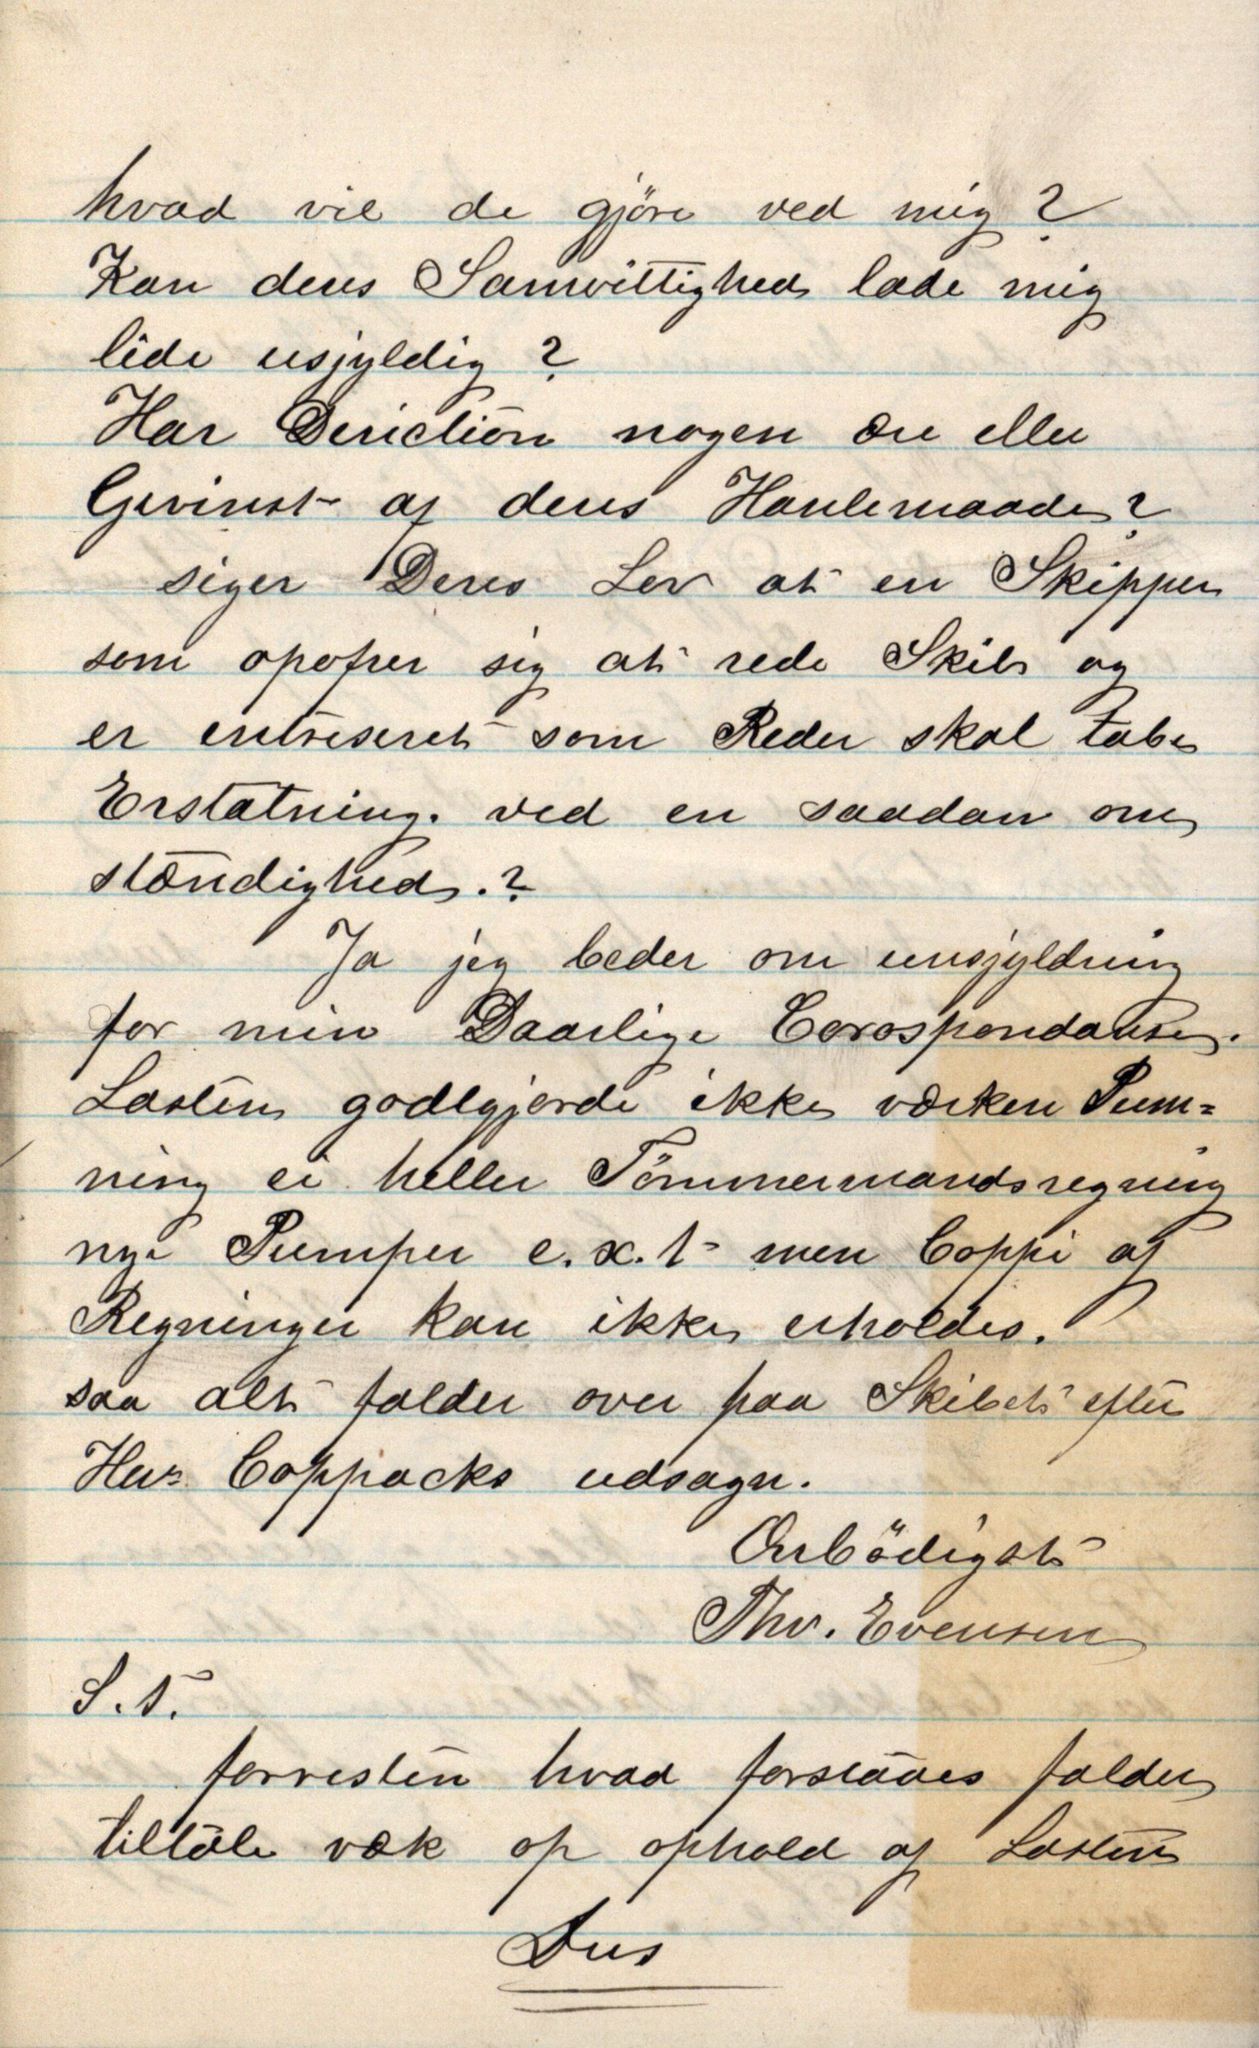 hvad vil de gjöre ved mig?
Kan deres Samvittighed lade mig
lide usjyldig?
Har Deriction nogen ære eller
Gevinst af deres Hanlemaade?
siger Deres Lov at en Skipper
som opofrer sig at rede Skib og
er entreseret som Reder skal tabe
Erstatning. ved en saadan om
stændighed.?
Ja jeg beder om unsjyldning
for min Daarlige Corospondanse.
Lasten godtgjorde ikke værken Pum=
ning ei heller Tömmermandsregning
nye Pumper e.x.t men Coppi af
Regninger kan ikke erholdes.
saa alt falder over paa Skibet efter
Her Coppacks udsagn.
Ærbödigst
Thv. Evensen
S. T.
forresten hvad forstaaes falder
tiltale væk op ophold af Lasten
Dus